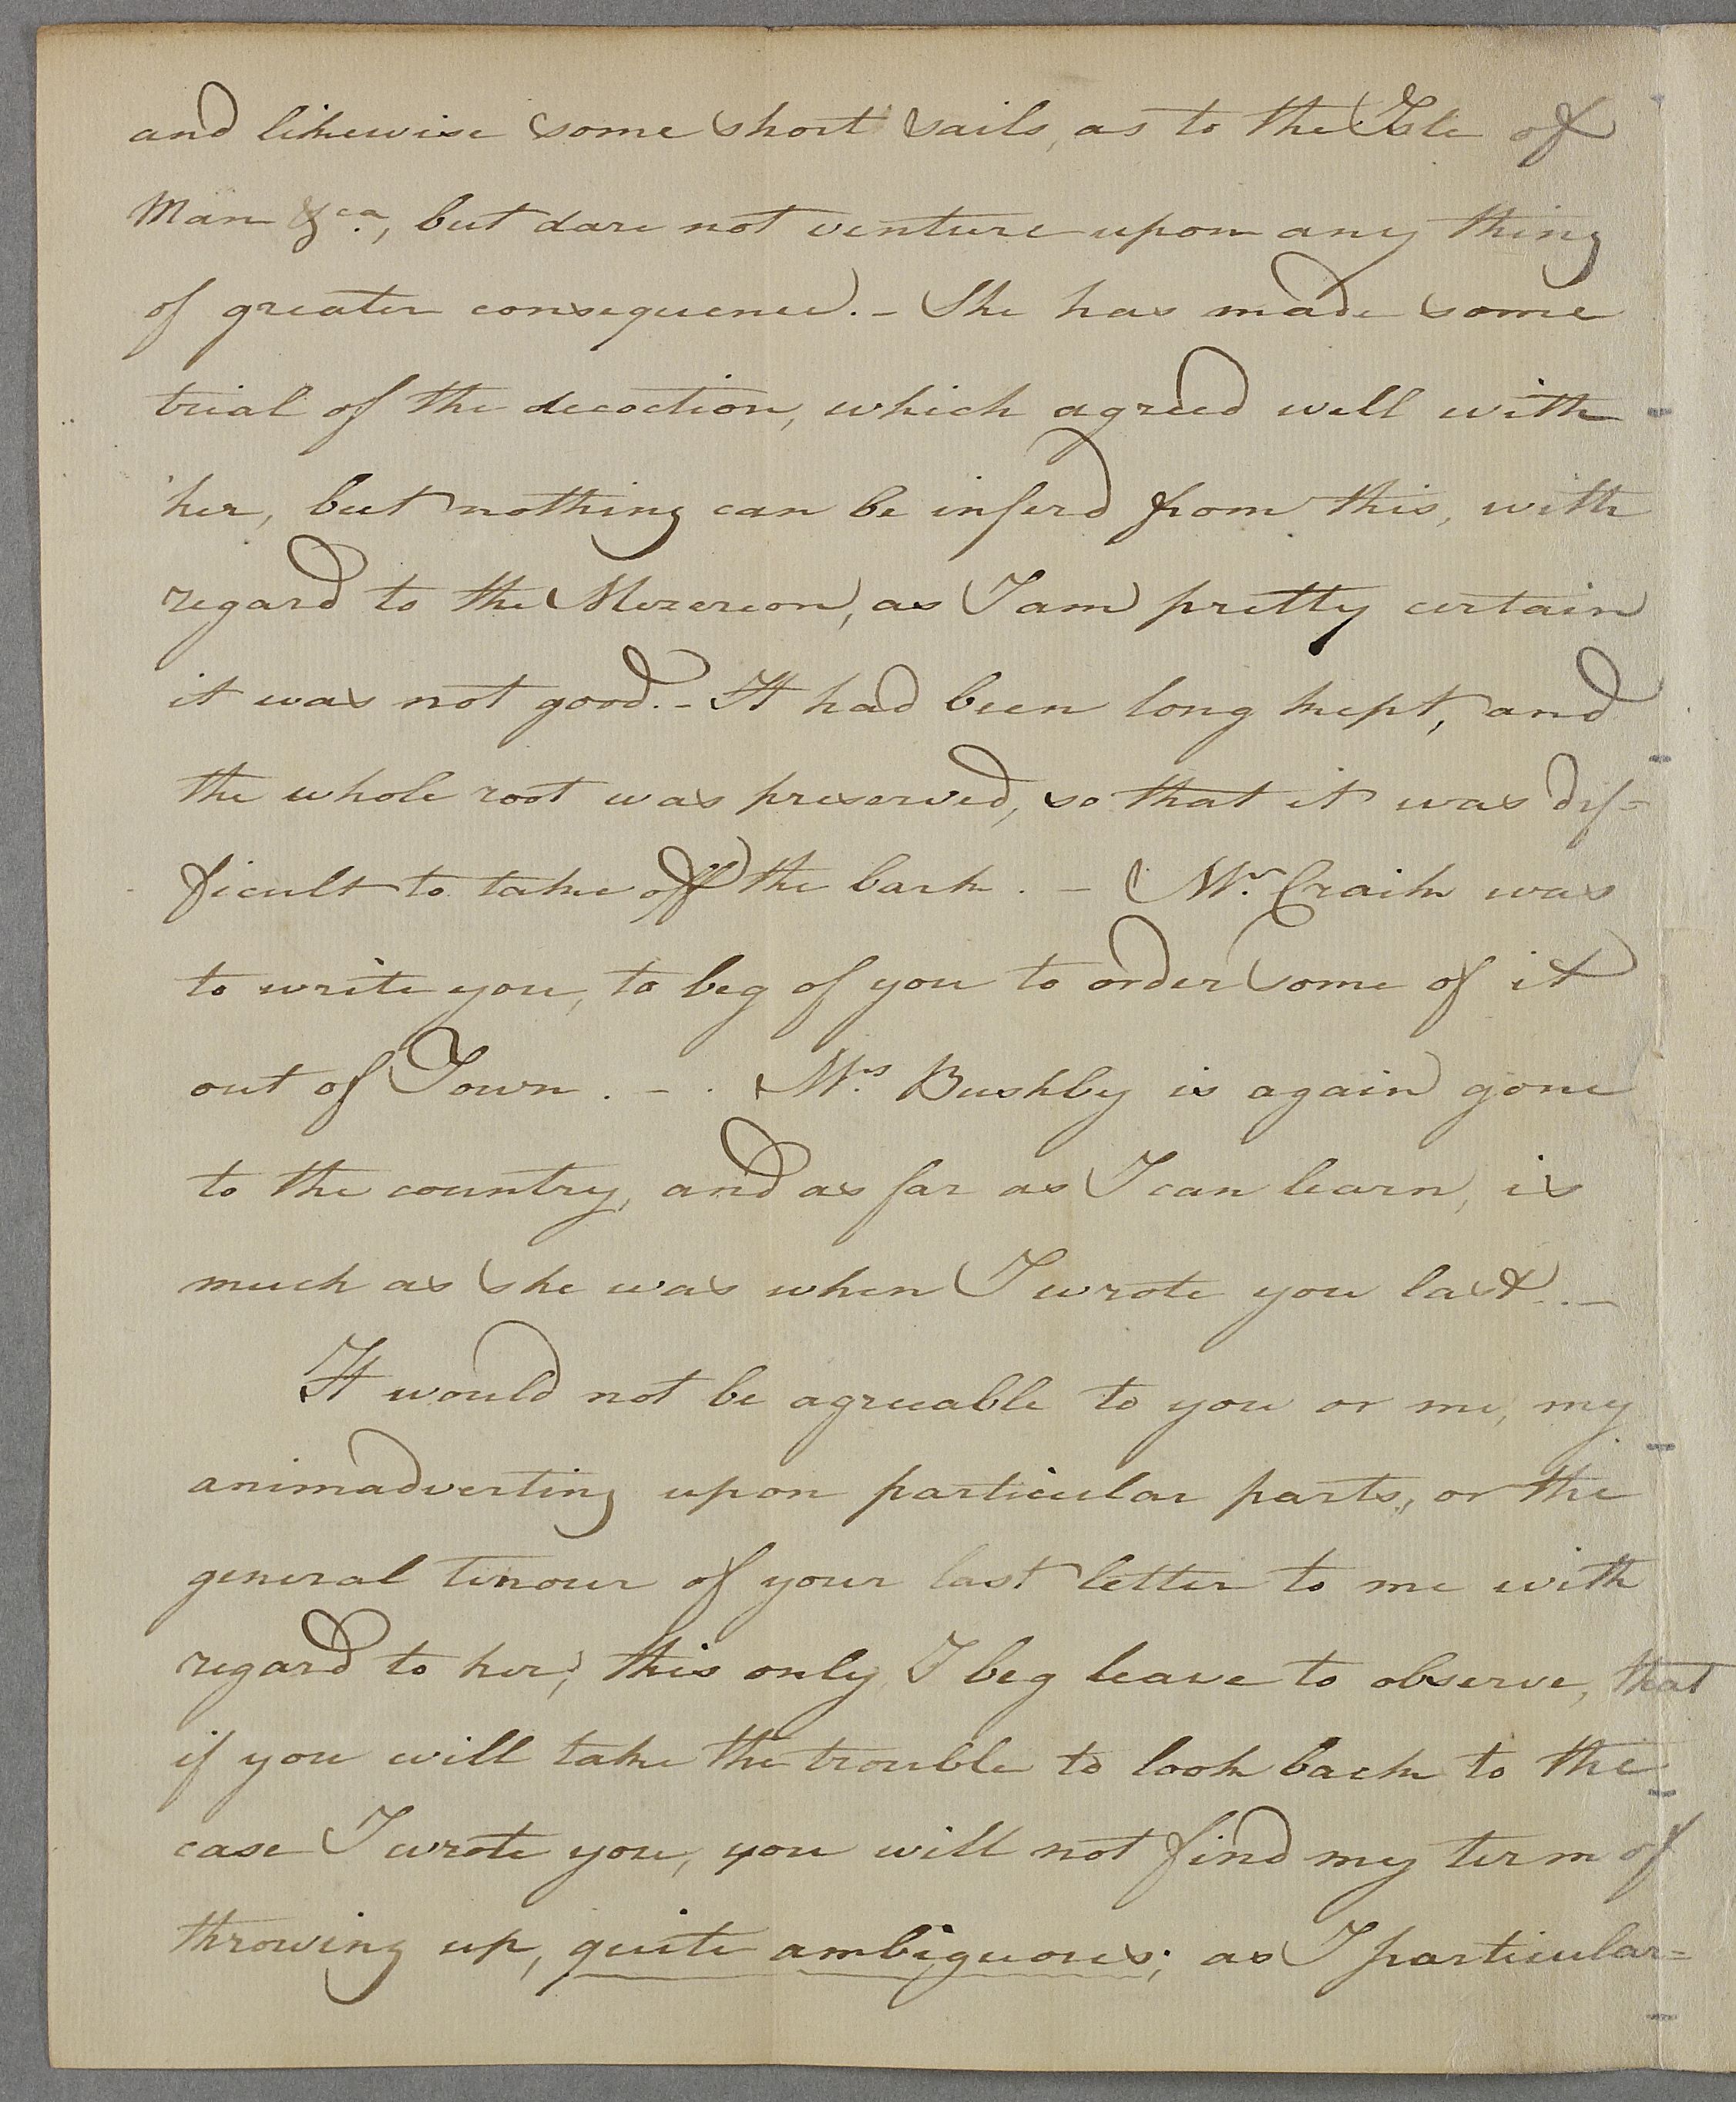 and likewise some short sails, as to the Isle of
Man &ca., but dare not venture upon any thing
of greater consequence. - She has made some
trial of the decoction, which agreed well with
her, but nothing can be inferd from this, with
regard to the Mezereon, as I am pretty certain
it was not good. - It had been long kept, and
the whole root was preserved, so that it was dif=
ficult to take off the bark. - Mr. Craik was
to write you, to beg of you to order some of it
out of Town. - . Mrs. Bushby is again gone
to the country, and as far as I can learn, is
much as she was when I wrote you last. -
It would not be agreeable to you or me, my
animadverting upon particular parts, or the
general tenour of your last letter to me with
regard to her; this only I beg leave to observe, that
if you will take the trouble to look back to the
case I wrote you, you will not find my term of
throwing up, quite ambiguous; as I particular=